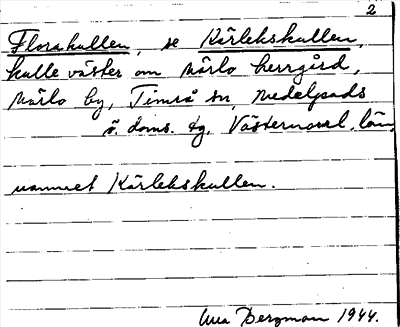 2
Florakullen, se Kärlekskullen,
kulle väster om Märlo herrgård,
Märlo by, Timrå sn, Medelpads
ö. doms. tg, Västernorrl. län,
namnet Kärlekskullen.
Bergman 1944.